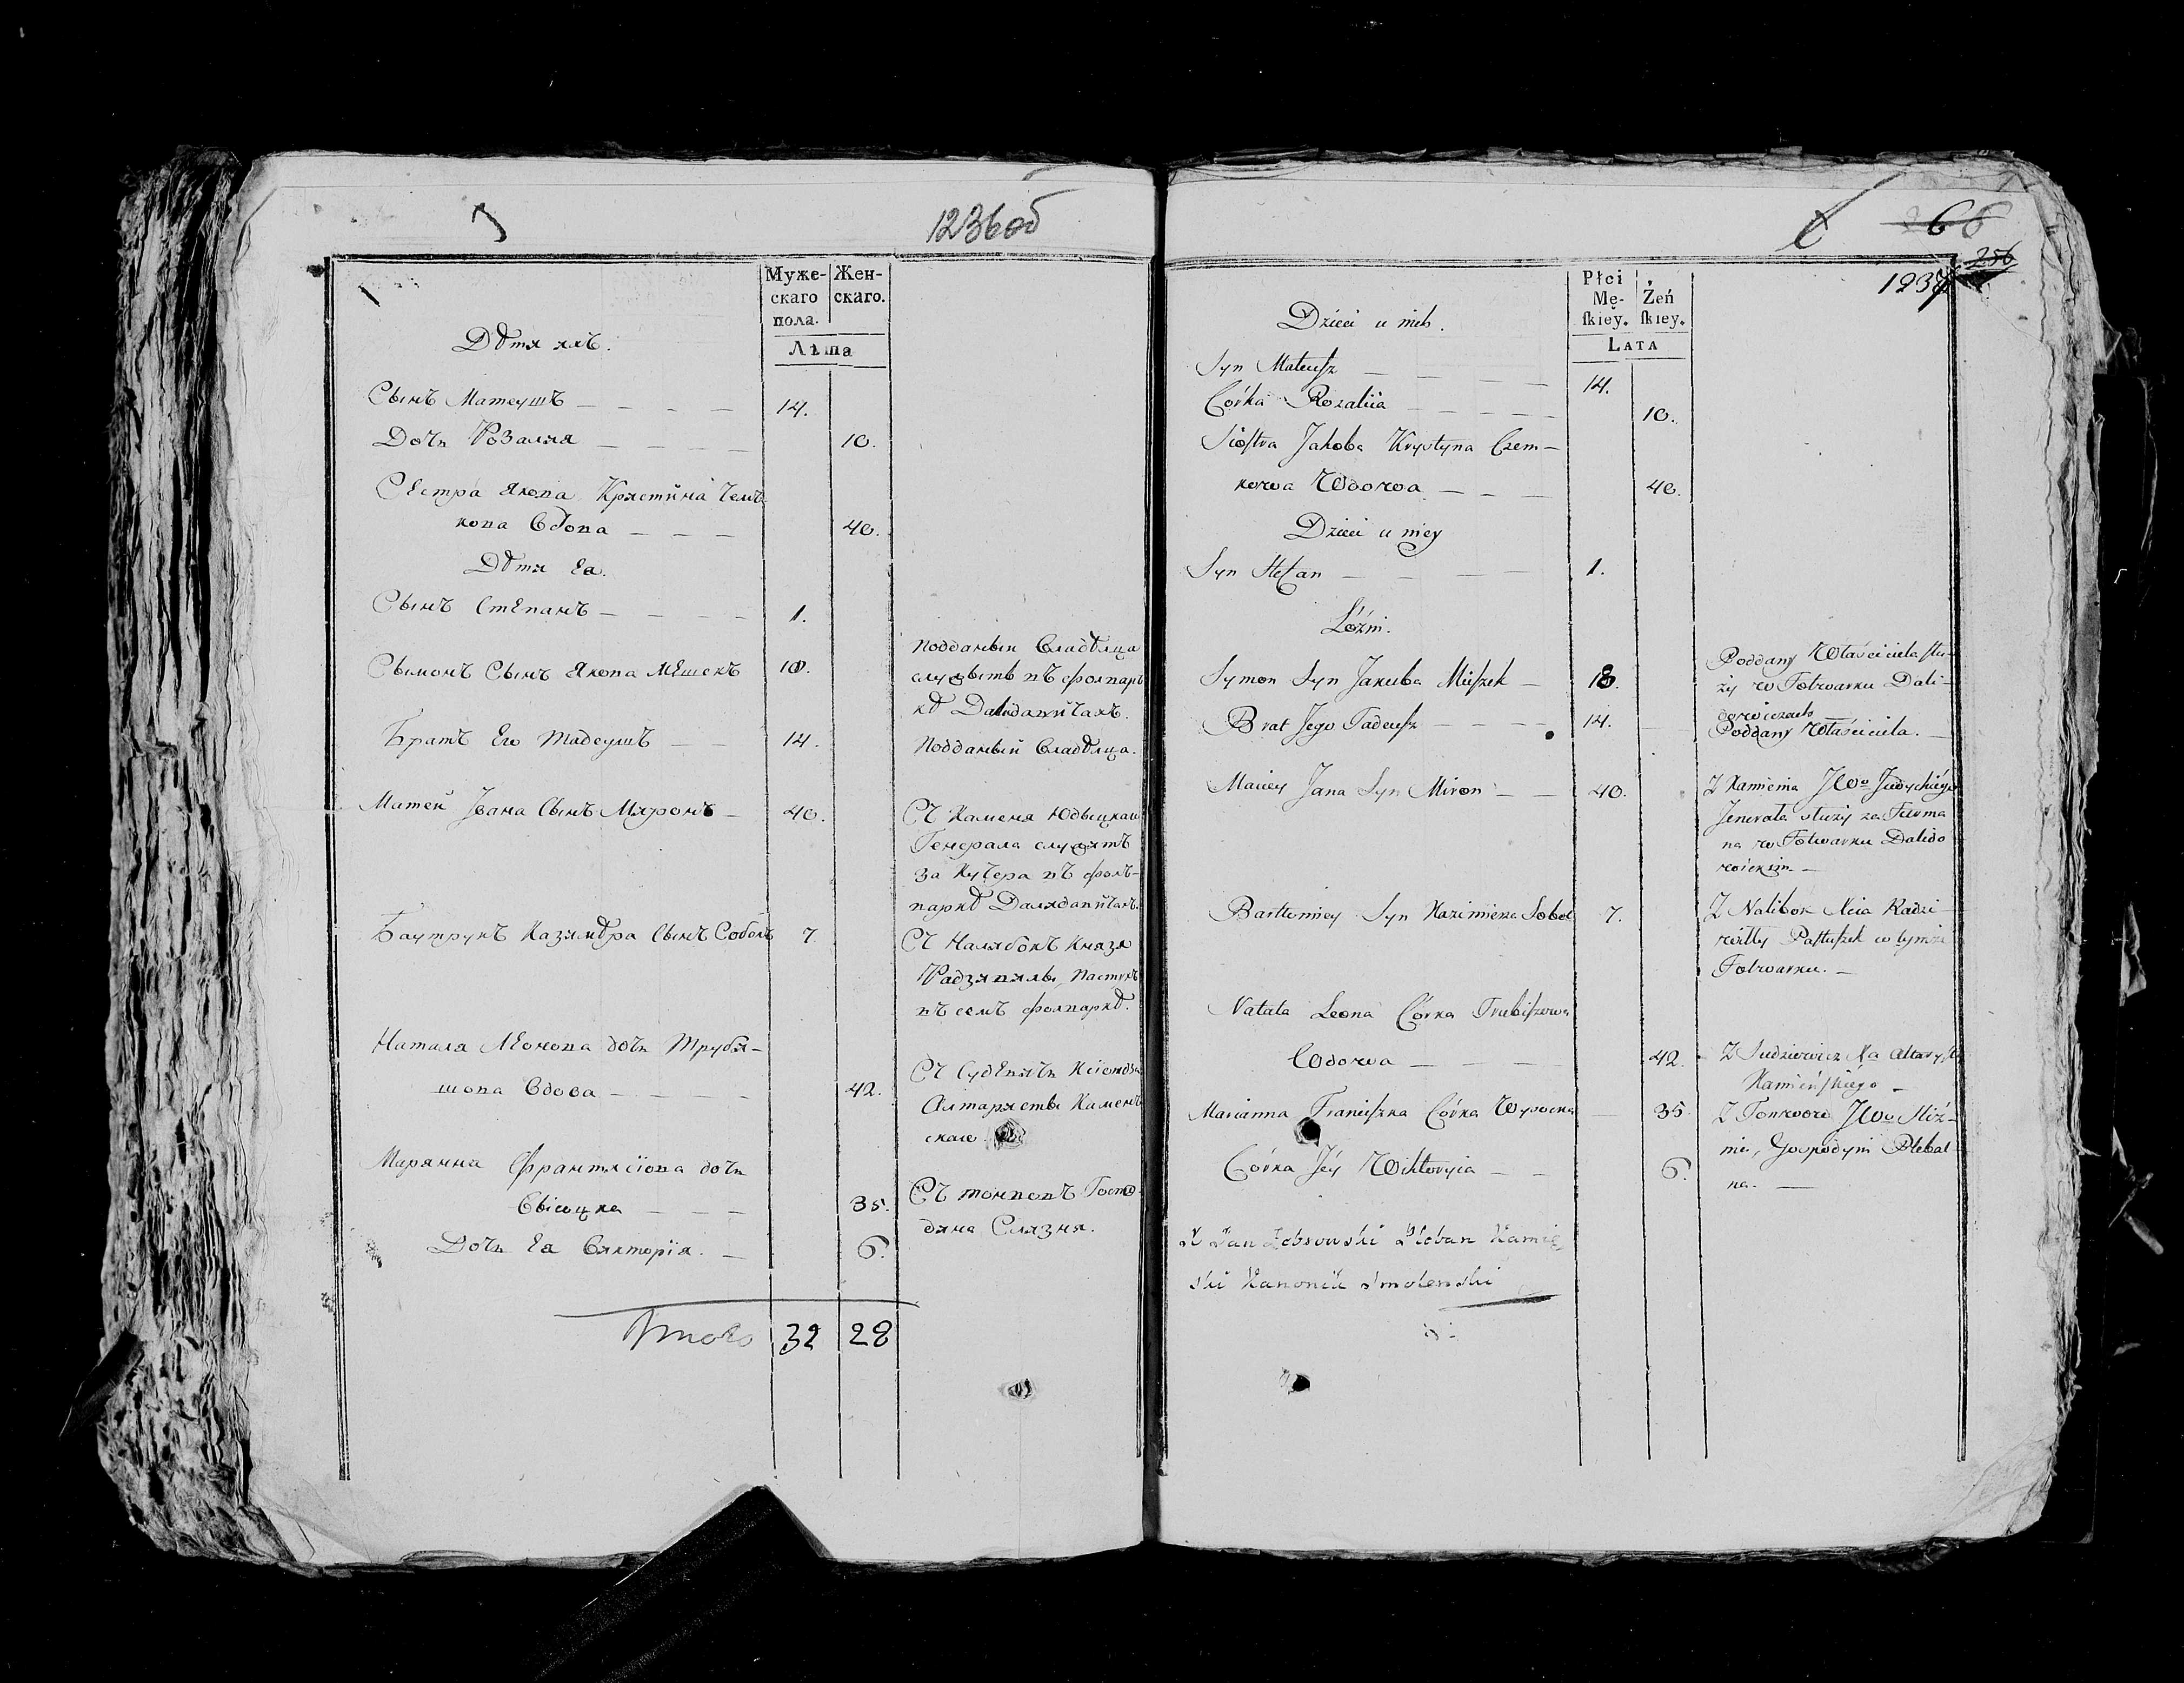 1236об
Муже-
скаго
пола.
Жен-
скаго.
Лѣта
Дѣти ихъ.
Сынъ Матеушъ — — — — 14.
Дочь Розалия — — — — 10.
Сестра Якова Кристина Чемъ
кова Вдова — — — 40.
Дѣти Ея.
Сынъ Степанъ — — — — 1.
Сымонъ Сынъ Якова Мешекъ 18.
подданый Владѣлца
служытъ въ фольвар
кѣ Далидавичахъ.
Братъ Его Тадеушъ — — 14.
Подданый Владѣлца.
Матей Ивана Сынъ Миронъ — 40.
Съ Каменя Юдыцкаго
Генерала служитъ
за Кучера въ фоль-
варкѣ Далидавичахъ.
Баутрукъ Казимѣра Сынъ Соболь 7.
Съ Налибокъ Князя
Радзивилы, пастухъ
въ семъ фольваркѣ.
Наталя Леонова дочь Труби-
шова Вдова — — — — 42.
Съ Ксіондза
Алтаристы Камень
скаго
Марянна Франтисіова дочь
Высоцка — — — 35.
Дочь Ея Викторія. — 6.
дина Слизня.
Итого 32 28
266
256
1237
Płci
Mę-
skiey.
Żeń
skiey.
LATA
Dzieci u nich.
Syn Mateusz — — — — — 14.
Córka Rozaliia — — — — — 10.
Siostra Jakoba Krystyna Czem-
kowa Wdowa — — — 40.
Dzieci u niey
Syn Stefan — — — — 1.
Lóźni.
Symon Syn Jakuba Miszek — 18.
Poddany Właściciela słu-
ży w Folwarku Dali-
dowiczach
Brat Jego Tadeusz — — — — 14.
Poddany Właściciela. —
Maciey Jana Syn Miron — — 40.
Z Kamienia JWo Judyckiego
Jenerała służy za Furma
na w Folwarku Dalido
wickim. —
Bartłomiey Syn Kazimierza Sobol 7.
Z Nalibok Xcia Radzi
wiłły Pastuszek w tymże
Folwarku. —
Natala Leona Córka Trubiszowa
Wdowa — — — 42.
Z Sudziewicz Xa Altarysty
Kamieńskiego —
Marianna Franciszka Córka Wysocka — 35.
JWo Sliź-
nia, Gospodyni Plebal
na. —
Córka Jéy Wiktoryia — — 6.
X Jan Pleban Kamie
ski Kanonik Smolenski